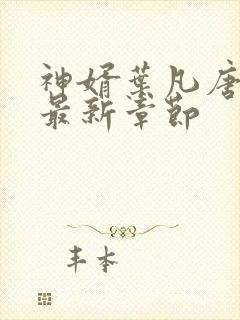 神婿叶凡唐
最新章節
丰本